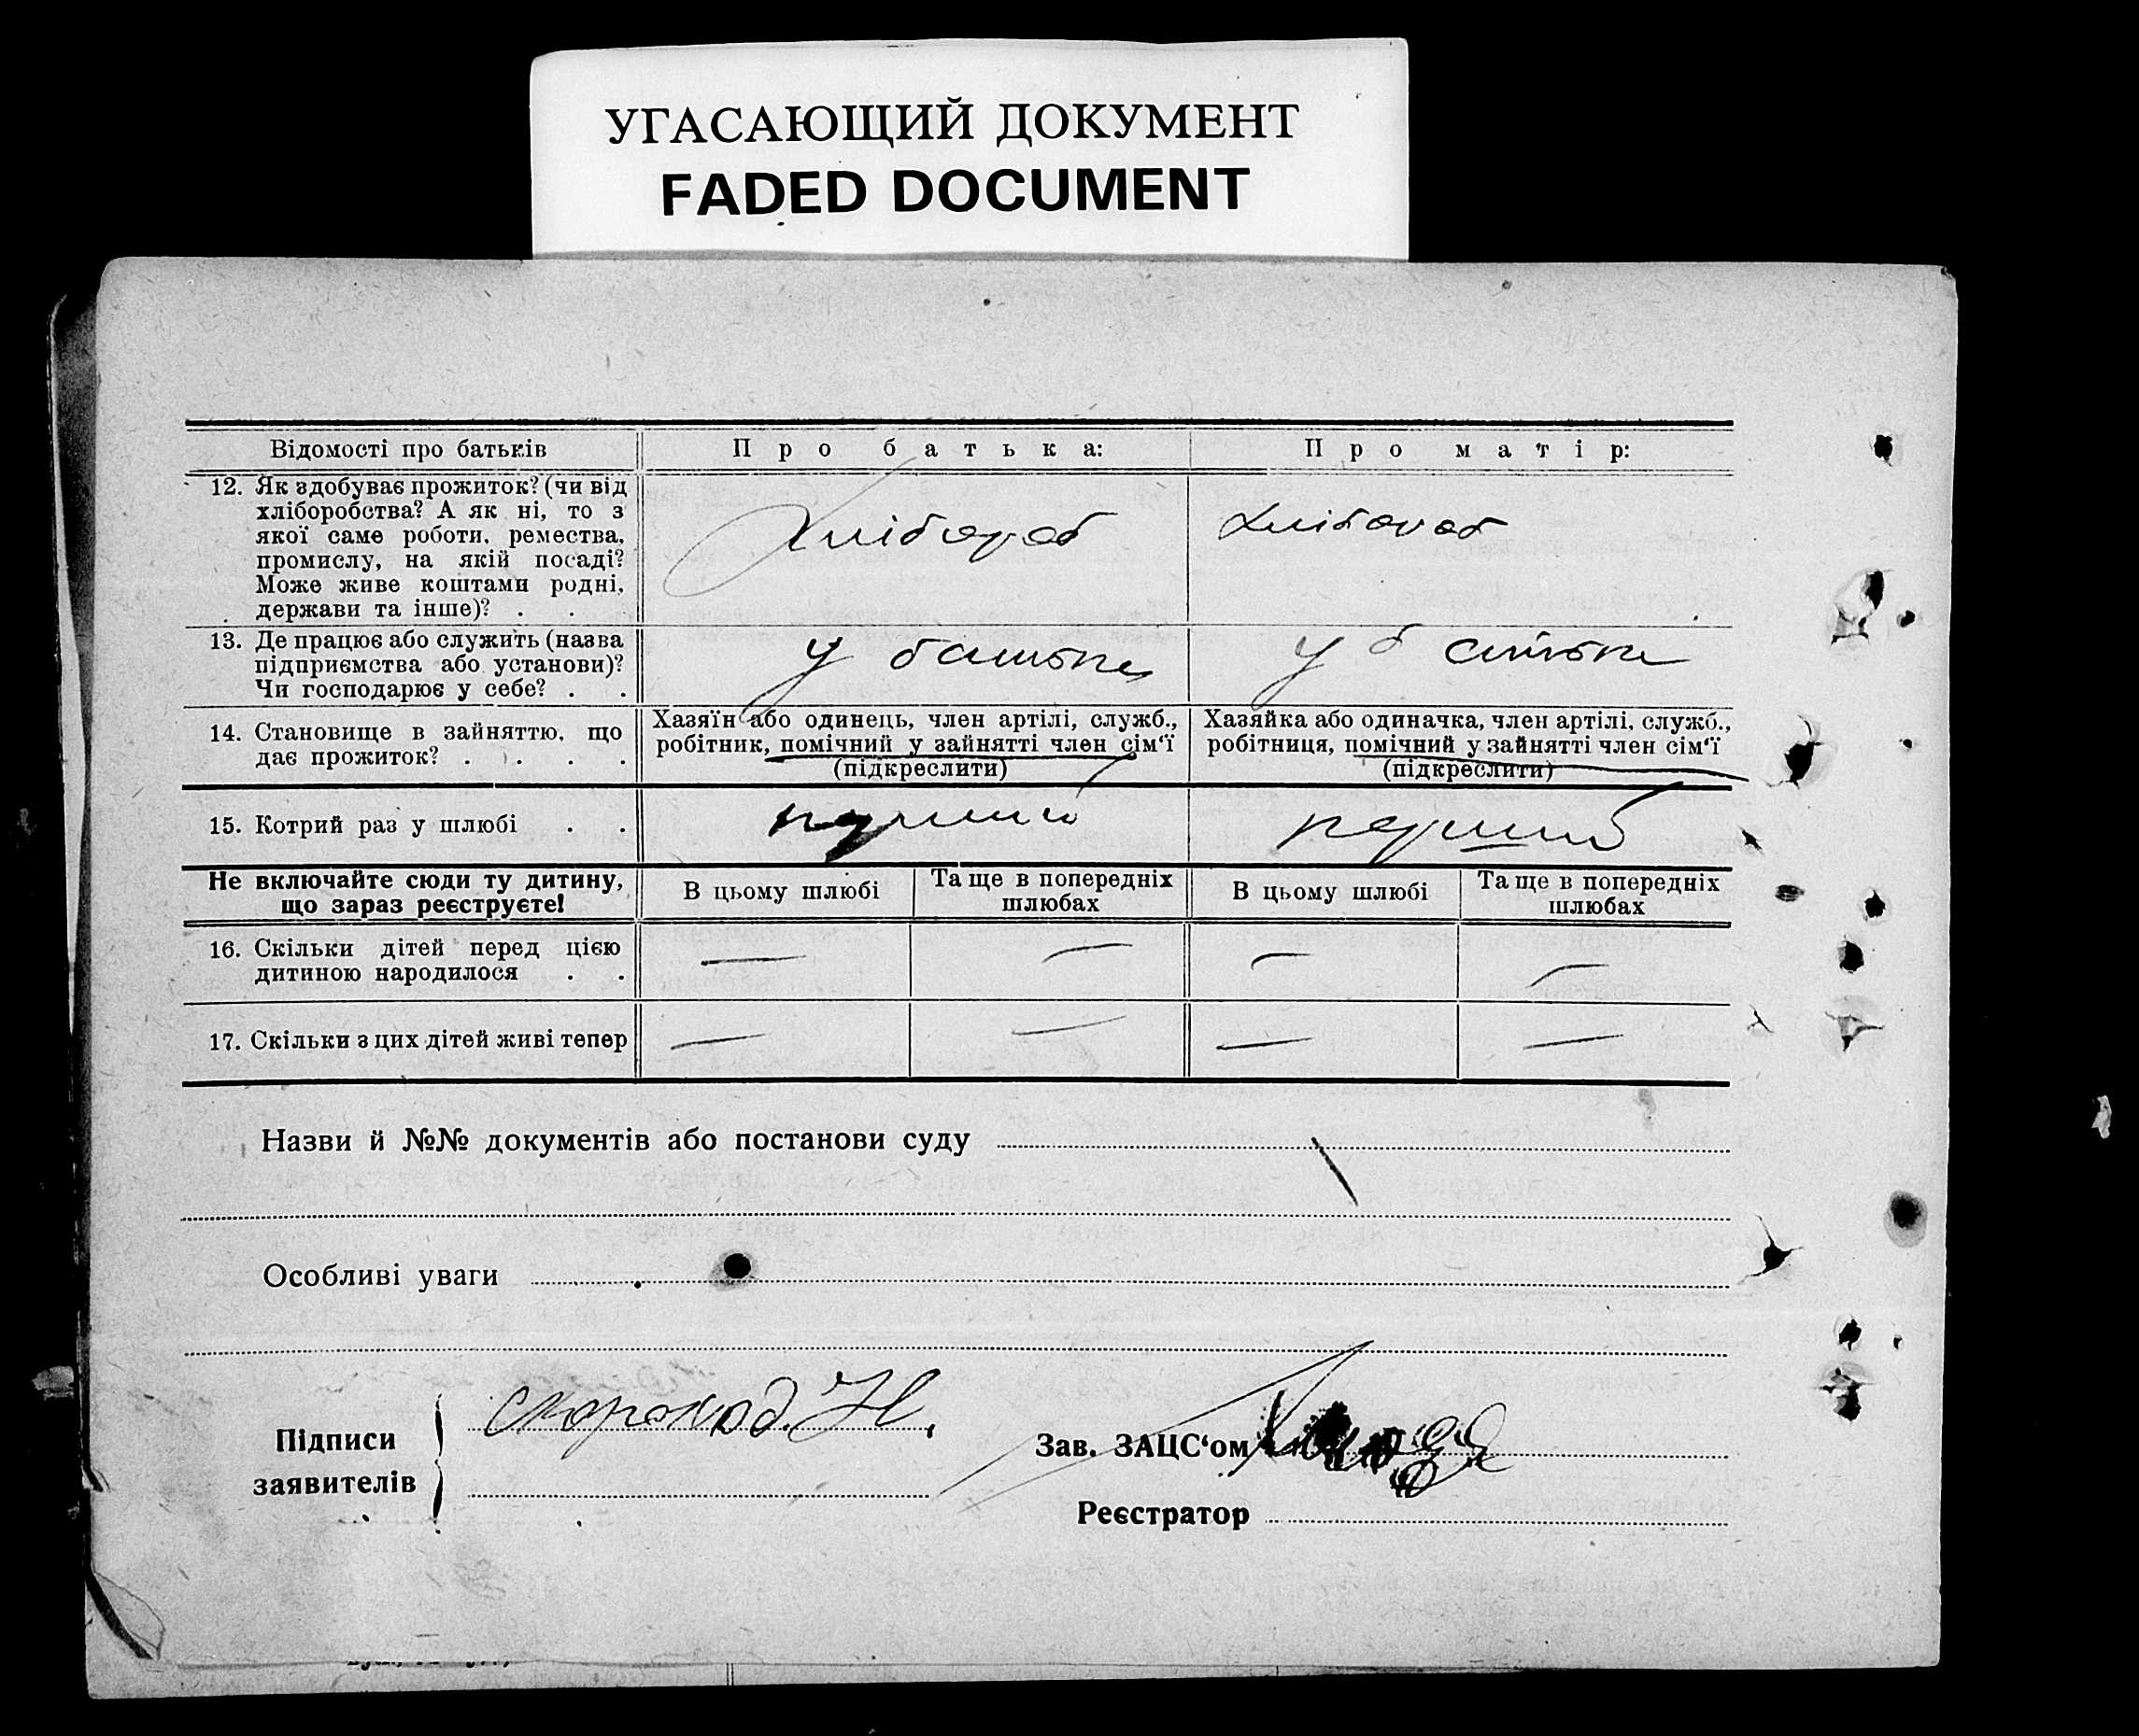 УГАСАЮЩИЙ ДОКУМЕНТ
FADED DOCUMENT
Відомості про батьків
Про батька:
Про матір:
12. Як здобуває прожиток? (чи від
хліборобства? А як ні, то з
якої саме роботи, ремества,
промислу, на якій посаді?
Може живе коштами родні,
держави та інше)? . .
Хлібороб
Хлібороб
13. Де працює або служить (назва
підприємства або установи)?
Чи господарює у себе? . .
у батька
у батька
14. Становище в зайняттю, що
дає прожиток? . . . .
Хазяїн або одинець, член артілі, служб.,
робітник, помічний у зайнятті член сім'ї
(підкреслити)
Хазяйка або одиначка, член артілі, служб.,
робітниця, помічний у зайнятті член сім'ї
(підкреслити)
15. Котрий раз у шлюбі . .
перший
перший
Не включайте сюди ту дитину,
що зараз реєструєте!
В цьому шлюбі
Та ще в попередніх
шлюбах
В цьому шлюбі
Та ще в попередніх
шлюбах
16. Скільки дітей перед цією
дитиною народилося . .
— — — —
17. Скільки з цих дітей живі тепер
— — — —
Назви й №№ документів або постанови суду
Особливі уваги
Підписи
заявителів
Скороход. Н.
Зав. ЗАЦС‘ом
Реєстратор